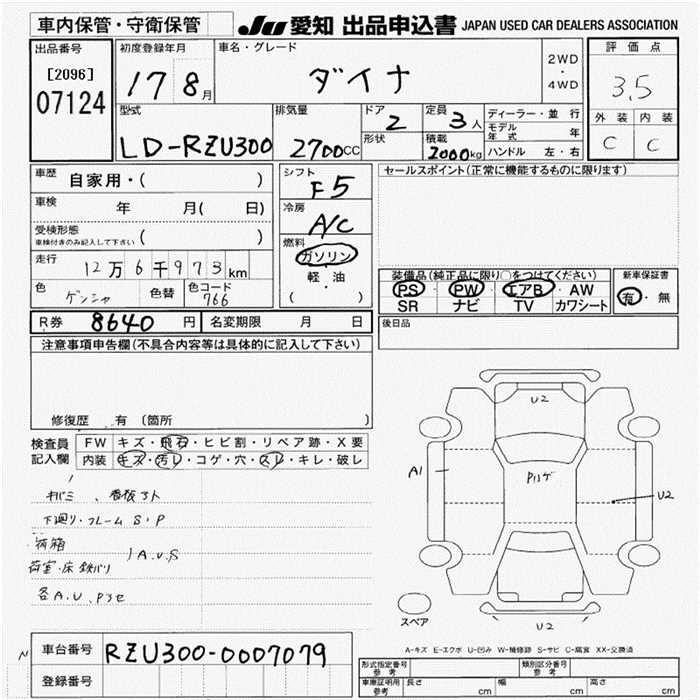 車内保管・守衛保管
JU 愛知 出品申込書 JAPAN USED CAR DEALERS ASSOCIATION
出品番号
[2096]
07124
初度登録年月
17 8月
車名・グレード
ダイナ
2WD
・
4WD
評価点
3.5
外装 内装
C C
型式
LD-RZU300
排気量
2700CC
ドア
2
形状
定員
3人
積載
2000kg
ディーラー・並行
モデル年式 年
ハンドル 左・右
車歴
自家用・( )
車検
年 月( 日)
受検形態
車検付きのみ記入して下さい ( )
走行
12万6千973km
色
ゲンシャ
色替
色コード
766
シフト
F5
冷房
A/C
燃料
ガソリン
・
軽油
( )
セールスポイント(正常に機能するものに限ります)
装備品(純正品に限り○をつけてください)
PS・PW・エアB・AW
SR ナビ TV カワシート
新車保証書
有・無
後日品
R券 8640円
名変期限 月 日
注意事項申告欄(不具合内容等は具体的に記入して下さい)
修復歴 有 〔箇所 〕
検査員
記入欄
FW キズ・飛石・ヒビ割・リペア跡・X要
内装 キズ・汚レ・コゲ・穴・スレ・キレ・破レ
キバミ、看板跡
下廻り・フレーム S・P
荷箱
A.U.S
荷室・床鉄バリ
各A.U.P
U2
A1
U2
U2
スペア
A-キズ E-エクボ U-凹み W-補修跡 S-サビ C-腐食 XX-交換済
N
車台番号
RZU300-0007079
登録番号
形式指定番号
参考
類別区分番号
参考
車庫証明用
参考
長さ cm
幅 cm
高さ cm